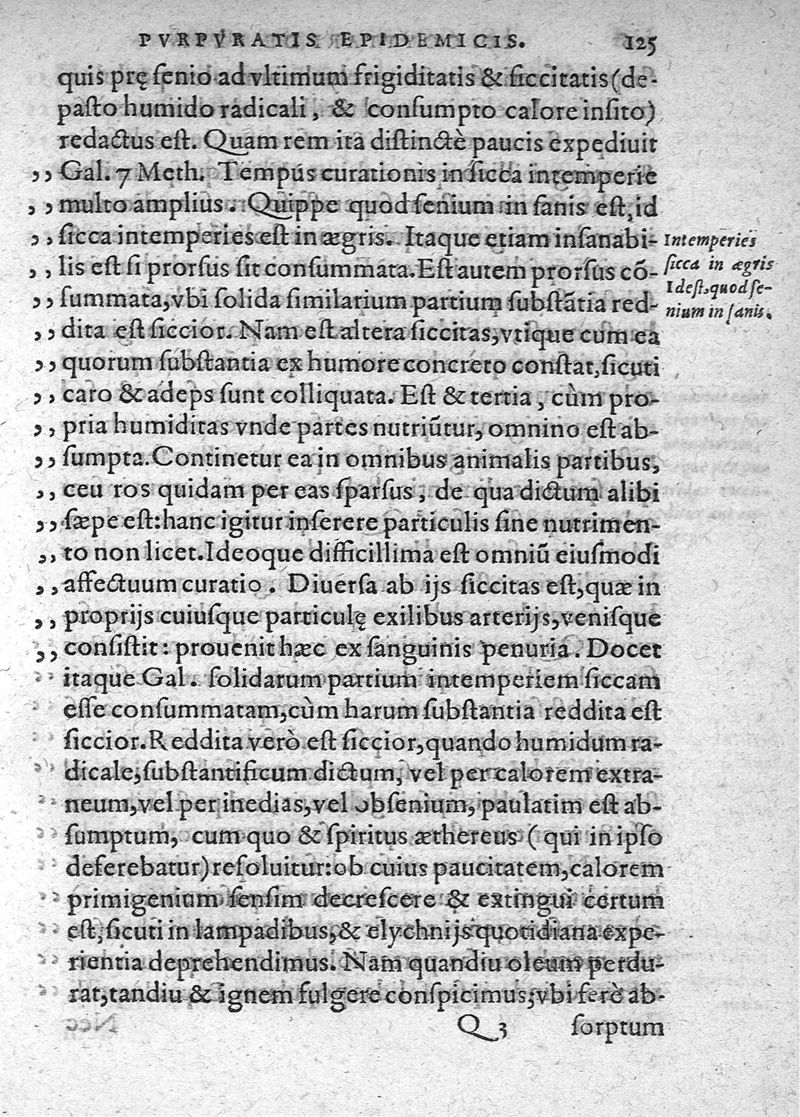 PVRPVRATIS EPIDEMICIS. 125
quis prę ſenio ad vltimum frigiditatis & ſiccitatis (de-
paſto humido radicali, & conſumpto calore inſito)
redactus eſt. Quam rem ita diſtinctè paucis expediuit
,, Gal. 7 Meth. Tempus curationis in ſicca intemperie
,, multo amplius. Quippe quod ſenium in ſanis eſt, id
,, ſicca intemperies eſt in ægris. Itaque etiam inſanabi-
,, lis eſt ſi prorſus ſit conſummata. Eſt autem prorſus cõ-
,, ſummata, vbi ſolida ſimilarium partium ſubſtãtia red-
,, dita eſt ſiccior. Nam eſt altera ſiccitas, vtique cum ea
,, quorum ſubſtantia ex humore concreto conſtat, ſicuti
,, caro & adeps ſunt colliquata. Eſt & tertia, cùm pro-
,, pria humiditas vnde partes nutriũtur, omnino eſt ab-
,, ſumpta. Continetur ea in omnibus animalis partibus,
,, ceu ros quidam per eas ſparſus, de qua dictum alibi
,, ſæpe eſt: hanc igitur inſerere particulis ſine nutrimen-
,, to non licet. Ideoque difficillima eſt omniũ eiuſmodi
,, affectuum curatio. Diuerſa ab ijs ſiccitas eſt, quæ in
,, proprijs cuiuſque particulę exilibus arterijs, veniſque
,, conſiſtit: prouenit hæc ex ſanguinis penuria. Docet
itaque Gal. ſolidarum partium intemperiem ſiccam
eſſe conſummatam, cùm harum ſubſtantia reddita eſt
ſiccior. Reddita verò eſt ſiccior, quando humidum ra-
dicale, ſubſtantificum dictum, vel per calorem extra-
neum, vel per inedias, vel ob ſenium, paulatim eſt ab-
ſumptum, cum quo & ſpiritus æthereus (qui in ipſo
deferebatur) reſoluitur: ob cuius paucitatem, calorem
primigenium ſenſim decreſcere & extingui certum
eſt, ſicuti in lampadibus, & elychnijs quotidiana expe-
rientia deprehendimus. Nam quandiu oleum perdu-
rat, tandiu & ignem fulgere conſpicimus; vbi ferè ab-
Q 3 ſorptum
Intemperies
ſicca in ægris
Id eſt, quod ſe-
nium in ſanis.